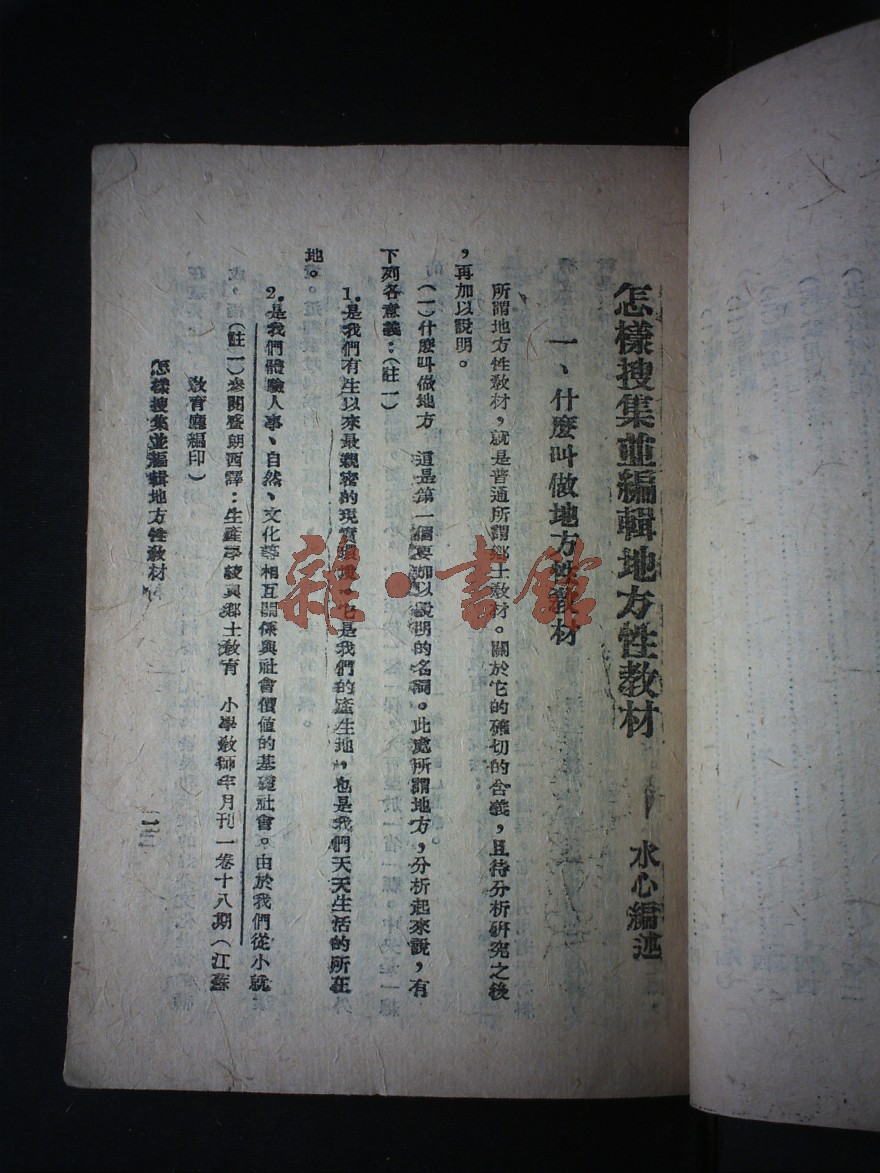 怎樣搜集並編輯地方性教材
水心編述
一、什麼叫做地方性教材
所謂地方性教材，就是普通所謂鄉土教材。關於它的確切的含義，且待分析研究之後
，再加以說明。
（一）什麼叫做地方　這是第一個要加以說明的名詞。此處所謂地方，分析起來說，有
下列各意義：（註一）
1.是我們有生以來最親密的現實環境，也是我們的產生地，也是我們天天生活的所在
地。
2.是我們體驗人事、自然、文化等相互關係與社會價值的基礎社會。由於我們從小就
（註一）參閱盛朗西譯：生產學校與鄉土教育　小學教師半月刊一卷十八期（江蘇
教育廳編印）
怎樣搜集並編輯地方性教材
雜·書館